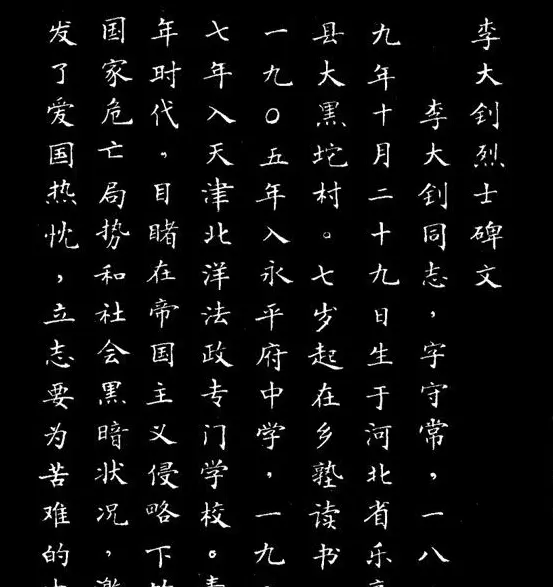 李大钊烈士碑文
李大钊同志，字守常，一八
九年十月二十九日生于河北省乐
县大黑坨村。七岁起在乡塾读书
一九〇五年入永平府中学，一九
七年入天津北洋法政专门学校。
年时代，目睹在帝国主义侵略下
国家危亡局势和社会黑暗状况，
发了爱国热忱，立志要为苦难的